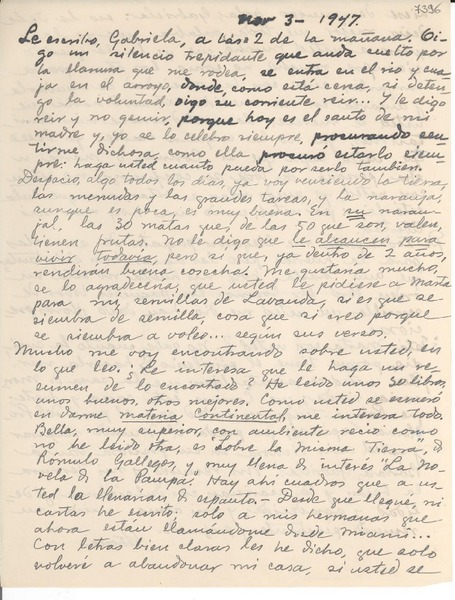 7396
Nov 3- 1947.
Le escribo, Gabriela, a las 2 de la mañana. Oi-
go un silencio trepidante que anda suelto por
la llanura que me rodea, se entra en el río y cua-
ja en el arroyo, donde, como está cena, si deten-
go la voluntad, oigo su corriente reir... Y le digo
reir y no gemir, porque hoy es el santo de mi
madre y, yo se lo celebro siempre, procurando sen-
tirme dichosa, como ella procuró estarlo siem-
pre: haga usted cuanto pueda por serlo tambien.
Despacio, algo todos los días, ya voy venciendo la tierra,
las menudas y las grandes tareas, y la naranja,
aunque es poca, es muy buena. En su naran-
jal, las 30 matas que, de las 50 que son, valen,
tienen frutas. No le digo que le alcancen para
vivir todavía, pero si que, ya dentro de 2 años,
rendirán buena cosecha. Me gustaría mucho,
se lo agradecería, que usted le pidiese a Marta
para mi, semillas de Lavanda, si es que se
siembra de semilla, cosa que si creo porque
se siembra a voleo... según sus versos.
Mucho me voy encontrando sobre usted, en
lo que leo. ¿Le interesa que le haga un re-
sumen de lo encontrado? He leido unos 30 libros,
unos buenos, otros mejores. Como usted se esmeró
en darme materia Continental, me interesa todo.
Bella, muy superior, con ambiente recio como
no he leido otra, es "Sobre la misma Tierra" de
Rómulo Gallegos, y muy llena de interés "La No-
vela de la Pampa." Hay ahí cuadros que a us-
ted la llenarían de espanto.- Desde que llegué, ni
cartas he escrito: sólo a mis hermanas que
ahora están llamándome desde Miami...
Con letras bien claras les he dicho, que solo
volveré a abandonar mi casa, si usted se